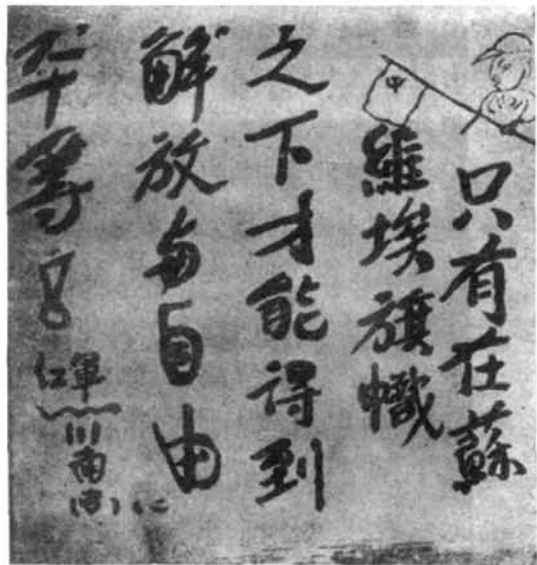 只有在蘇
維埃旗幟
之下才能得到
解放与自由
平等!
红軍
川南